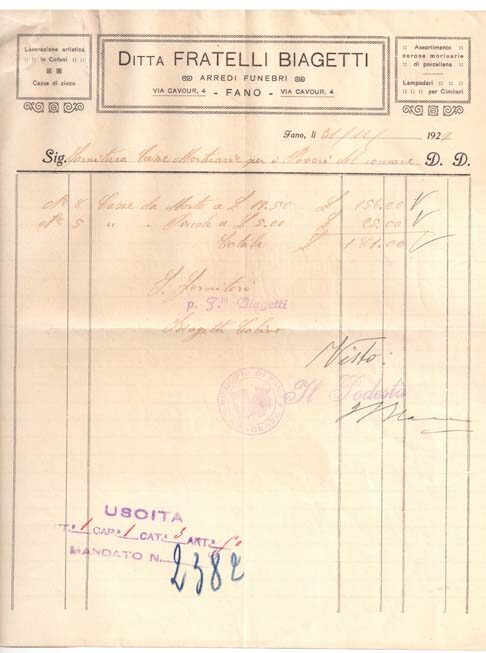 Lavorazione artistica
in Cofani
Casse di zinco
DITTA FRATELLI BIAGETTI
ARREDI FUNEBRI
VIA CAVOUR, 4 - FANO - VIA CAVOUR, 4
Assortimento
corone mortuarie
di porcellana
Lampadari
per Cimiteri
Fano, li 31/12/ 1929
Sig. Fornitura Casse Mortuarie per i Poveri del comune D. D.
N° 8 Casse da Morto a £ 19.50 £ 156.00
N° 5 " " Piccole a £ 5.00 £ 25.00
Totale £ 181.00
I Fornitori
p. F.lli Biagetti
Biagetti
Visto:
Il Podestà
USCITA
T.° 1 CAP.° 1 CAT.° 3 ART.° 50
MANDATO N. 2382